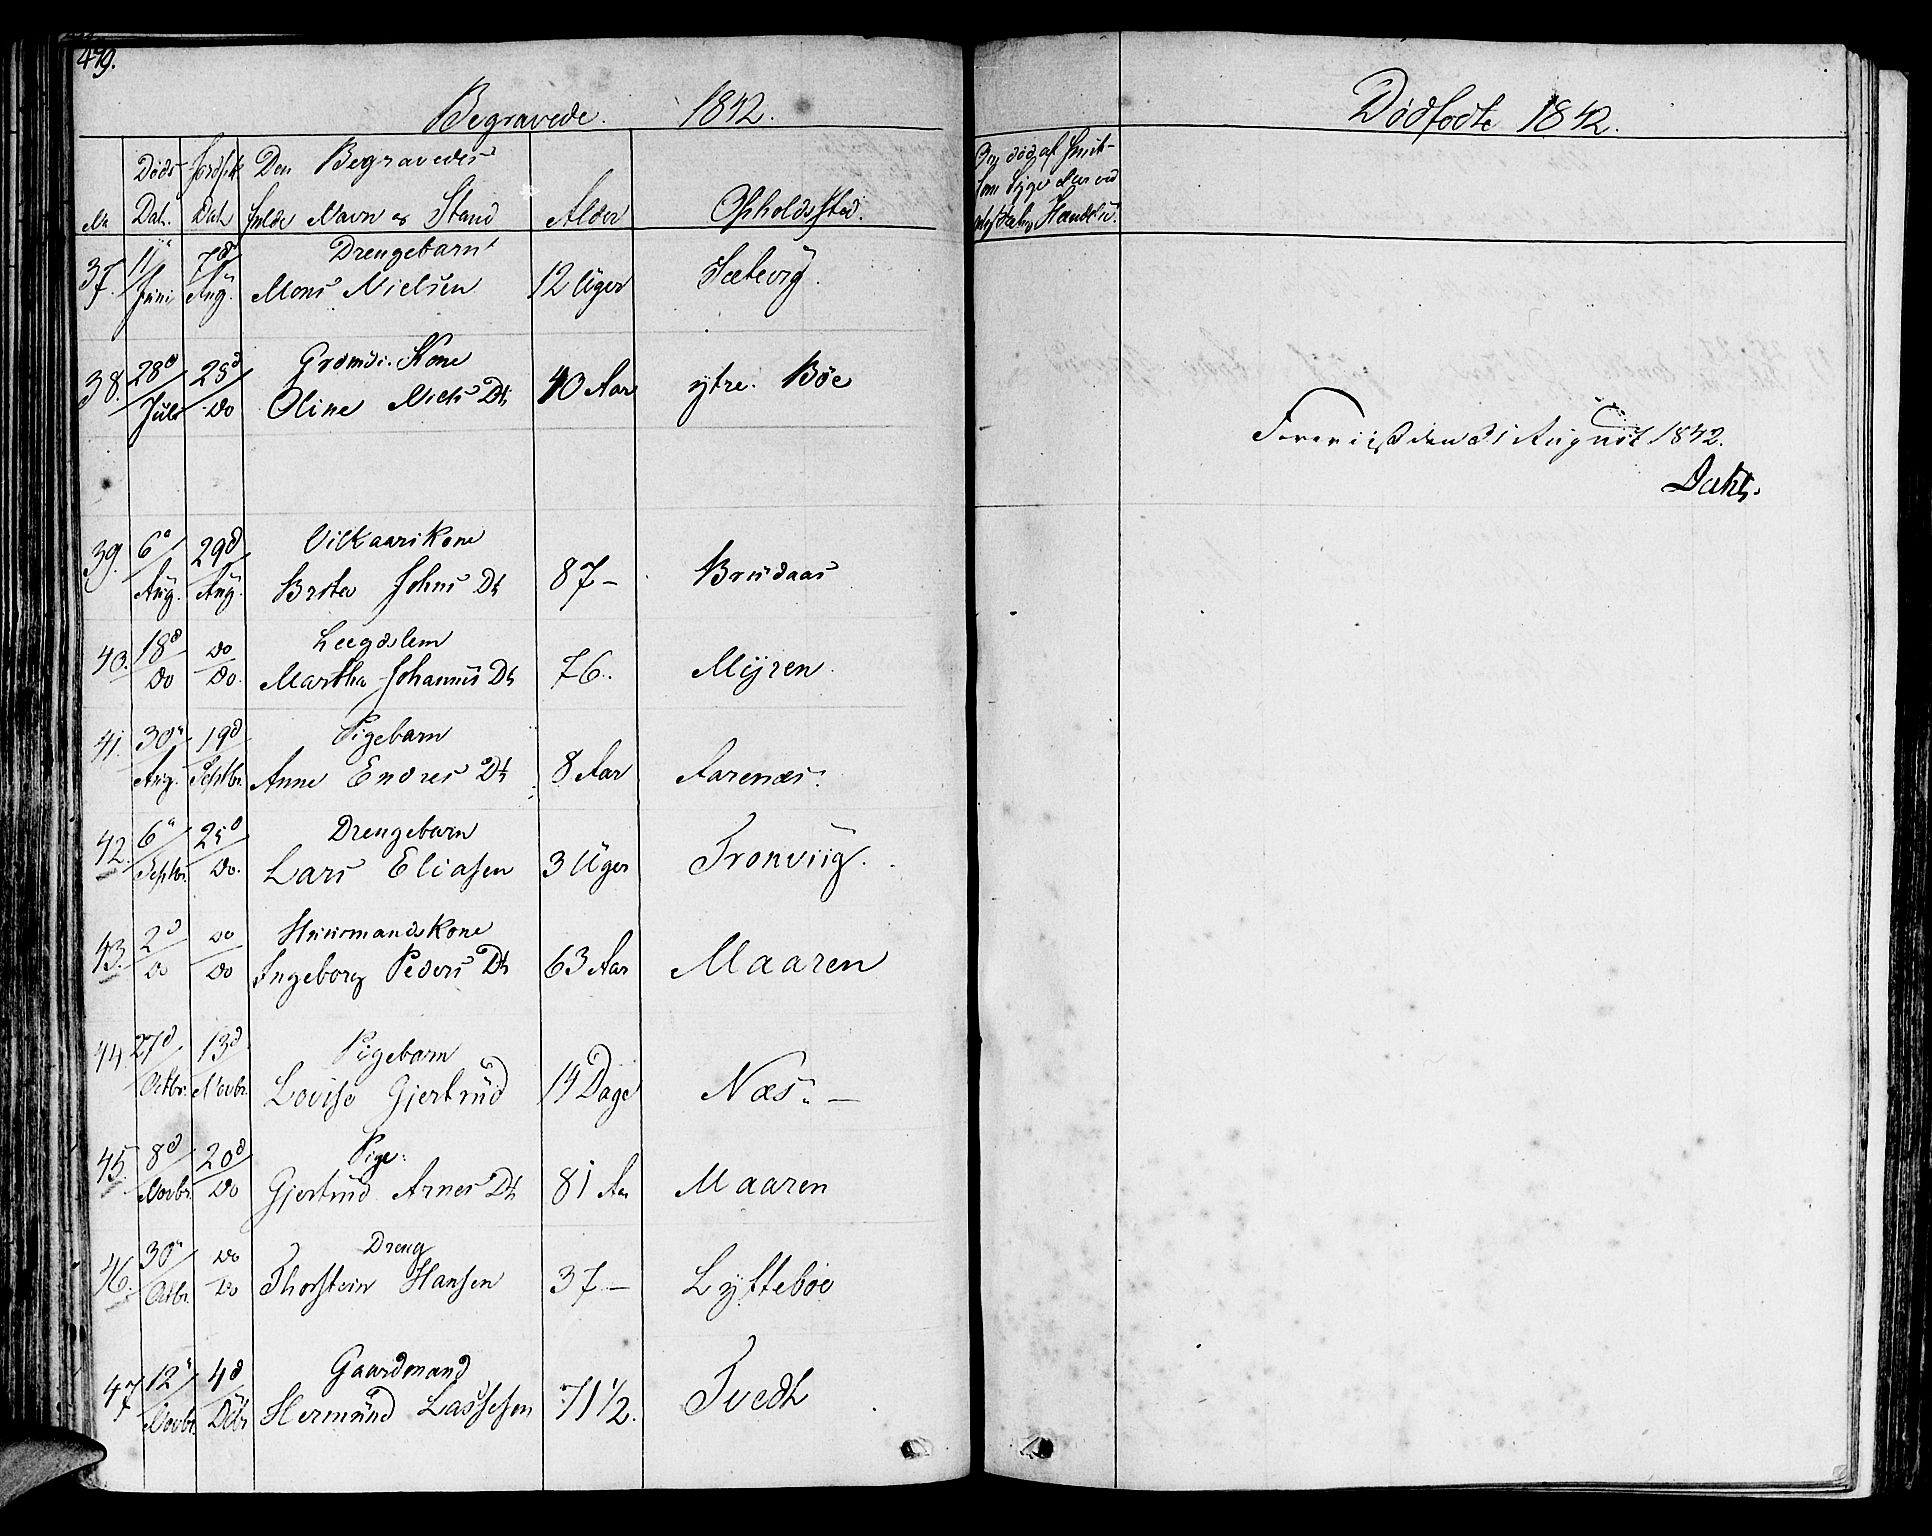 479.
Begravede. 1842.
No Døds Dat. Jordf. Dat. Den Begravedes fulde Navn og Stand Alder Opholdssted.
37. 11te/Juni 7de/Aug. Drengebarn
Mons Nielsen 12 Uger Sætevig.
38. 28d/Juli 25d/do Grdmds. Kone
Oline Niels Dt 40 Aar ytre. Böe
39. 6d/Aug. 29d/Aug. Vilkaarskone
Brita Johns Dt 87 – Brudaas
40. 18d/do do/do. Leegdslem
Martha Johannes Dt 76. Myren.
41. 30te/Aug. 19d/Septbr. Pigebarn
Anne Endres Dt 8 Aar Aarenæs.
42. 6te/Septbr. 25d/do. Drengebarn
Lars Eliasen 3 Uger Tronviig.
43. 2d/do do/do Huusmandskone
Ingeborg Peders Dt 63 Aar Maaren
44. 27d/Octbr. 13d/Novbr. Pigebarn
Lovise Gjertrud 14 Dage Næs. –
45 8d/Novbr. 20d/do Pige.
Gjertrud Arnes Dt 81 Aar Maaren
46. 30te/Octbr. do/do Dreng
Thorstein Hansen 37 – Lyttebøe
47 12te/Novbr. 4d/Dcbr Gaardmand
Hermund Lassesen 71 1/2. Tvedt
Dødfødte 1842.
Om død af
Foreviist den 31 August 1842.
Dahl.